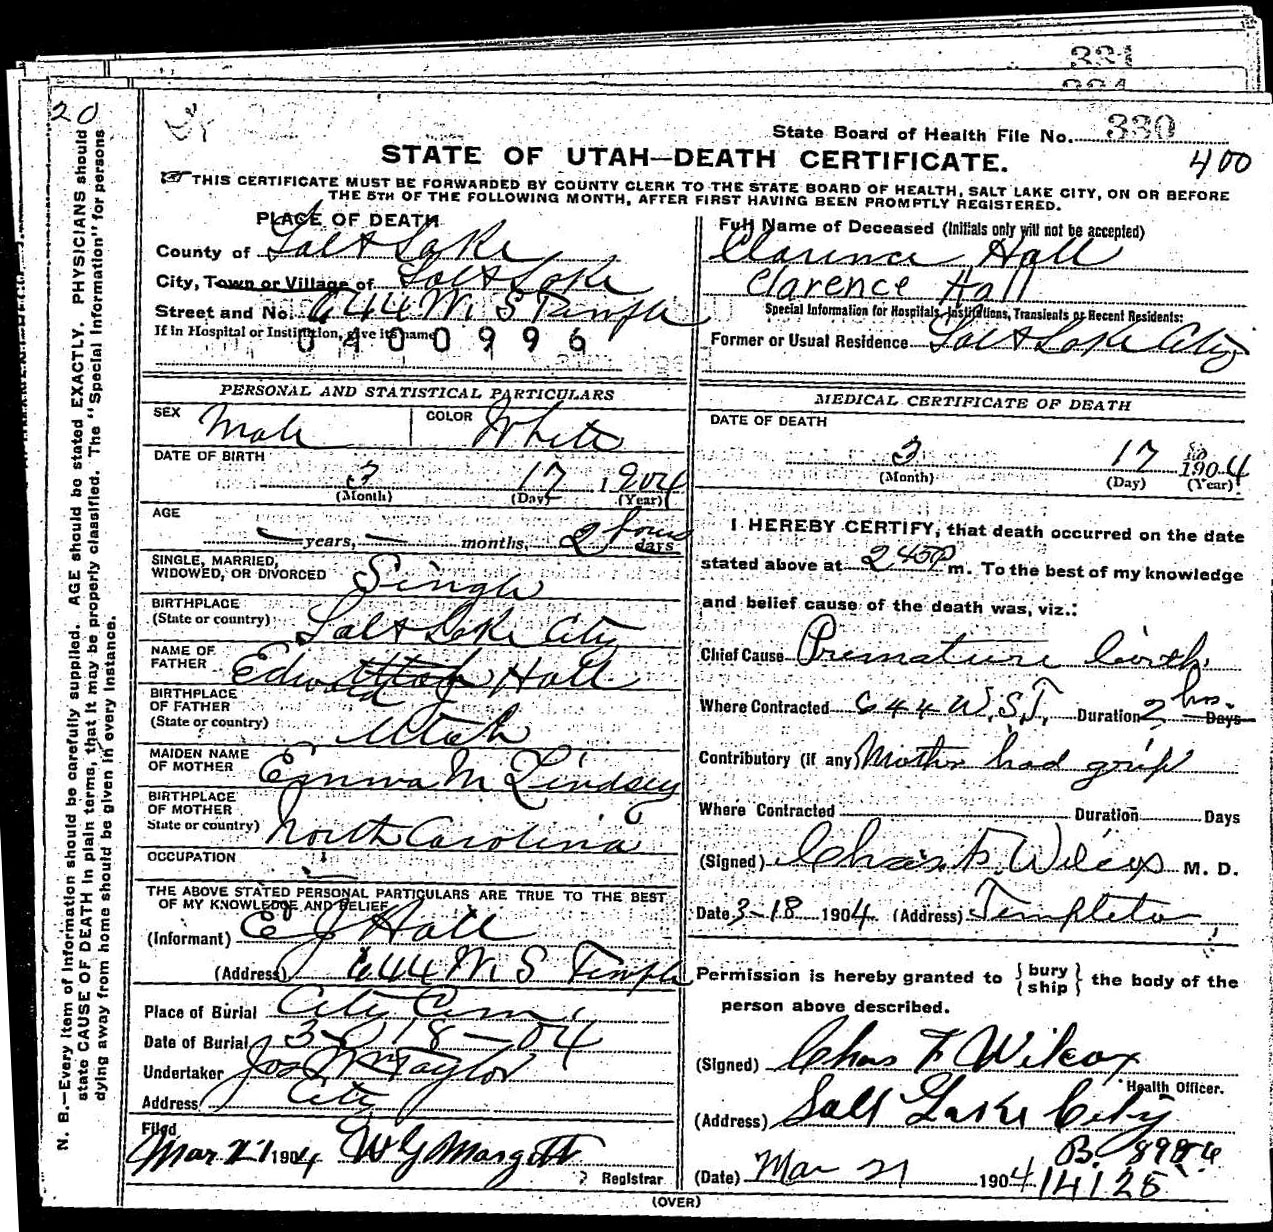 331
20
N. B.—Every item of information should be carefully supplied. AGE should be stated EXACTLY. PHYSICIANS should
state CAUSE OF DEATH in plain terms, that it may be properly classified. The "Special Information" for persons
dying away from home should be given in every instance.
State Board of Health File No. 330
STATE OF UTAH—DEATH CERTIFICATE.
400
THIS CERTIFICATE MUST BE FORWARDED BY COUNTY CLERK TO THE STATE BOARD OF HEALTH, SALT LAKE CITY, ON OR BEFORE
THE 5TH OF THE FOLLOWING MONTH, AFTER FIRST HAVING BEEN PROMPTLY REGISTERED.
PLACE OF DEATH
County of Salt Lake
City, Town or Village of Salt Lake
Street and No. 644 W. S Temple
If in Hospital or Institution, give its name
0400996
Full Name of Deceased (Initials only will not be accepted)
Clarence Hall
Clarence Hall
Special Information for Hospitals, Institutions, Transients or Recent Residents:
Former or Usual Residence Salt Lake City
PERSONAL AND STATISTICAL PARTICULARS
SEX Male COLOR White
DATE OF BIRTH
3 17 1904
(Month) (Day) (Year)
AGE
— years, — months, 2 hours days
SINGLE, MARRIED,
WIDOWED, OR DIVORCED Single
BIRTHPLACE
(State or country) Salt Lake City
NAME OF
FATHER Edward Hall
BIRTHPLACE
OF FATHER
(State or country) Utah
MAIDEN NAME
OF MOTHER Emma M Lindsey
BIRTHPLACE
OF MOTHER
State or country) North Carolina
OCCUPATION —
THE ABOVE STATED PERSONAL PARTICULARS ARE TRUE TO THE BEST
OF MY KNOWLEDGE AND BELIEF
(Informant) E J Hall
(Address) 644 W. S Temple
Place of Burial City Cem.
Date of Burial 3-18-04
Undertaker Jos Wm Taylor
Address City
Filed
Mar 21 1904 W G Margetts
Registrar
MEDICAL CERTIFICATE OF DEATH
DATE OF DEATH
3 17 1904
(Month) (Day) (Year)
I HEREBY CERTIFY, that death occurred on the date
stated above at 2 45 P m. To the best of my knowledge
and belief cause of the death was, viz.:
Chief Cause Premature birth
Where Contracted 644 W. S. T. Duration 2 hrs. Days
Contributory (if any) Mother had grip
Where Contracted Duration Days
(Signed) Chas F. Wilcox M. D.
Date 3-18 1904 (Address) Templeton
Permission is hereby granted to {bury
ship} the body of the
person above described.
(Signed) Chas F Wilcox
Health Officer.
(Address) Salt Lake City
B. 8986
(Date) Mar 21 1904 14125
(OVER)